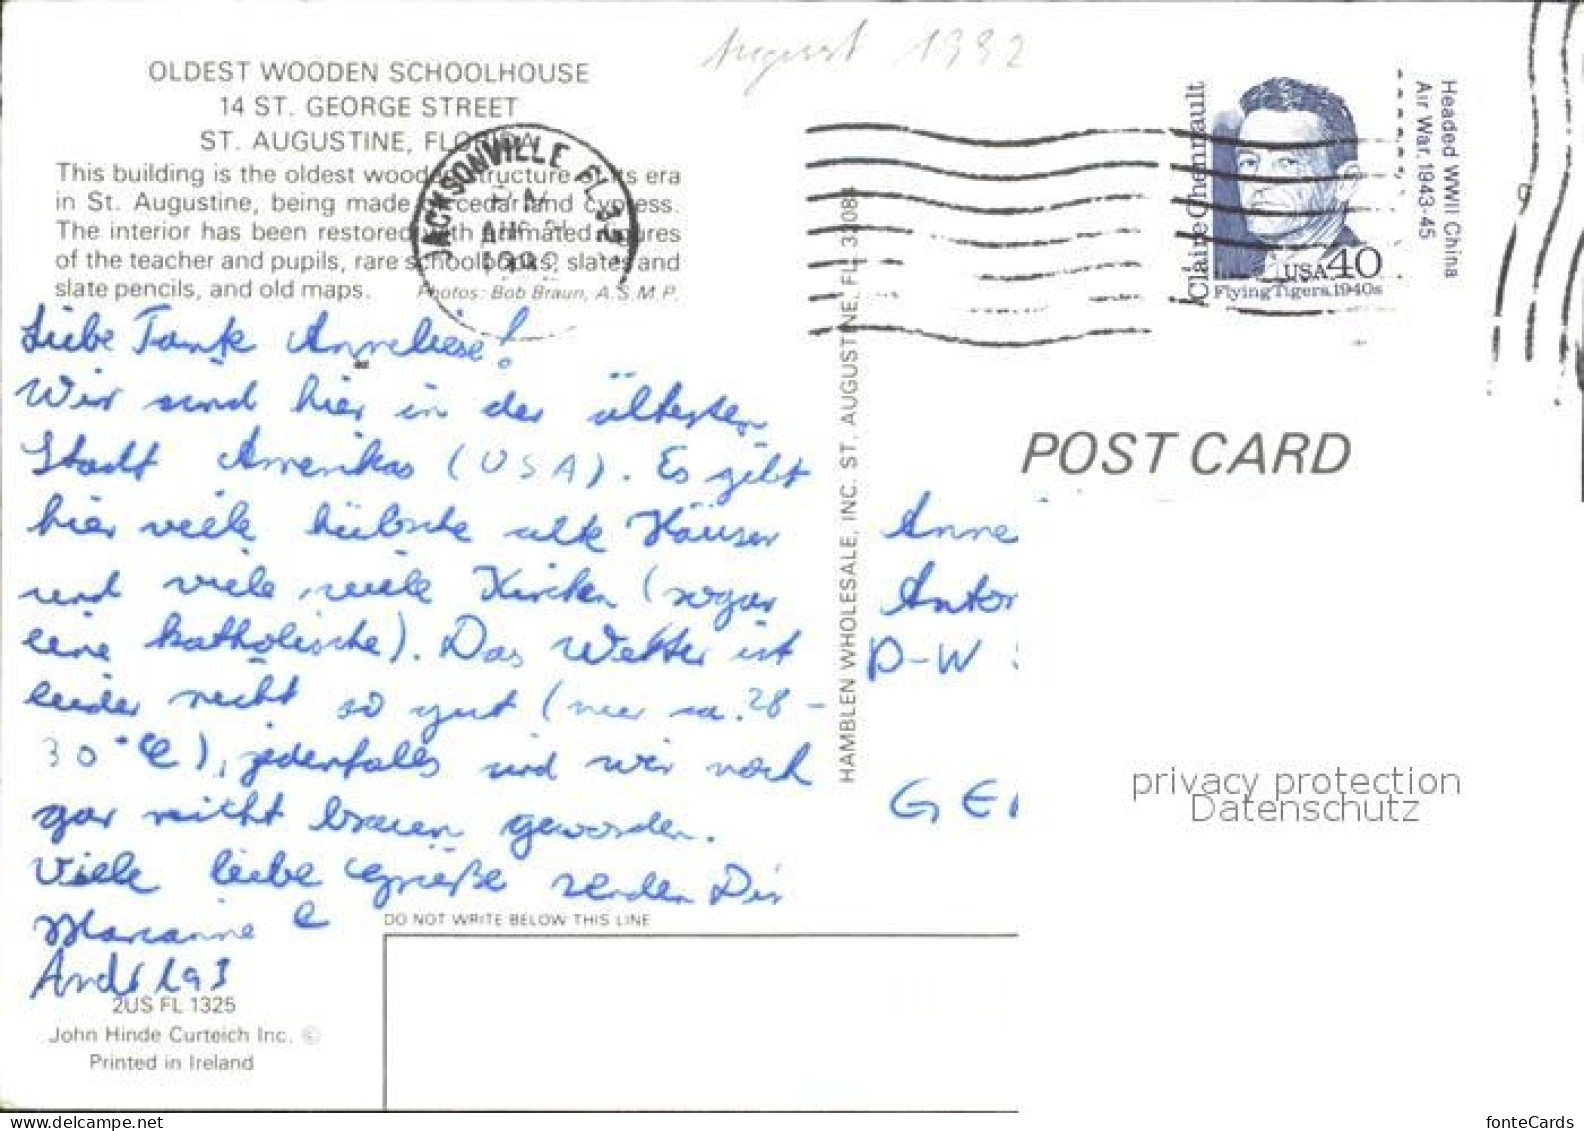 August 1992
OLDEST WOODEN SCHOOLHOUSE
14 ST. GEORGE STREET
ST. AUGUSTINE, FLORIDA
This building is the oldest wooden structure of its era
in St. Augustine, being made of cedar and cypress.
The interior has been restored with animated figures
of the teacher and pupils, rare schoolbooks, slates and
slate pencils, and old maps. Photos: Bob Braun, A.S.M.P.
JACKSONVILLE FL 32
PM
AUG
Liebe Tante Anneliese!
Wir sind hier in der ältesten
Stadt Amerikas (USA). Es gibt
hier viele hübsche alte Häuser
und viele, viele Kirchen (sogar
eine katholische). Das Wetter ist
leider nicht so gut (nur ca. 28 -
30 °C), jedenfalls sind wir noch
gar nicht braun geworden.
Viele liebe Grüße senden Dir
Marianne &
Andreas
2US FL 1325
John Hinde Curteich Inc. ©
Printed in Ireland
DO NOT WRITE BELOW THIS LINE
HAMBLEN WHOLESALE, INC. ST. AUGUSTINE, FL 32084
Claire Chennault
USA 40
Flying Tigers, 1940s
Headed WWII China
Air War, 1943-45
POST CARD
Anne
Anton
D-W
GER
privacy protection
Datenschutz
www.delcampe.net
fonteCards